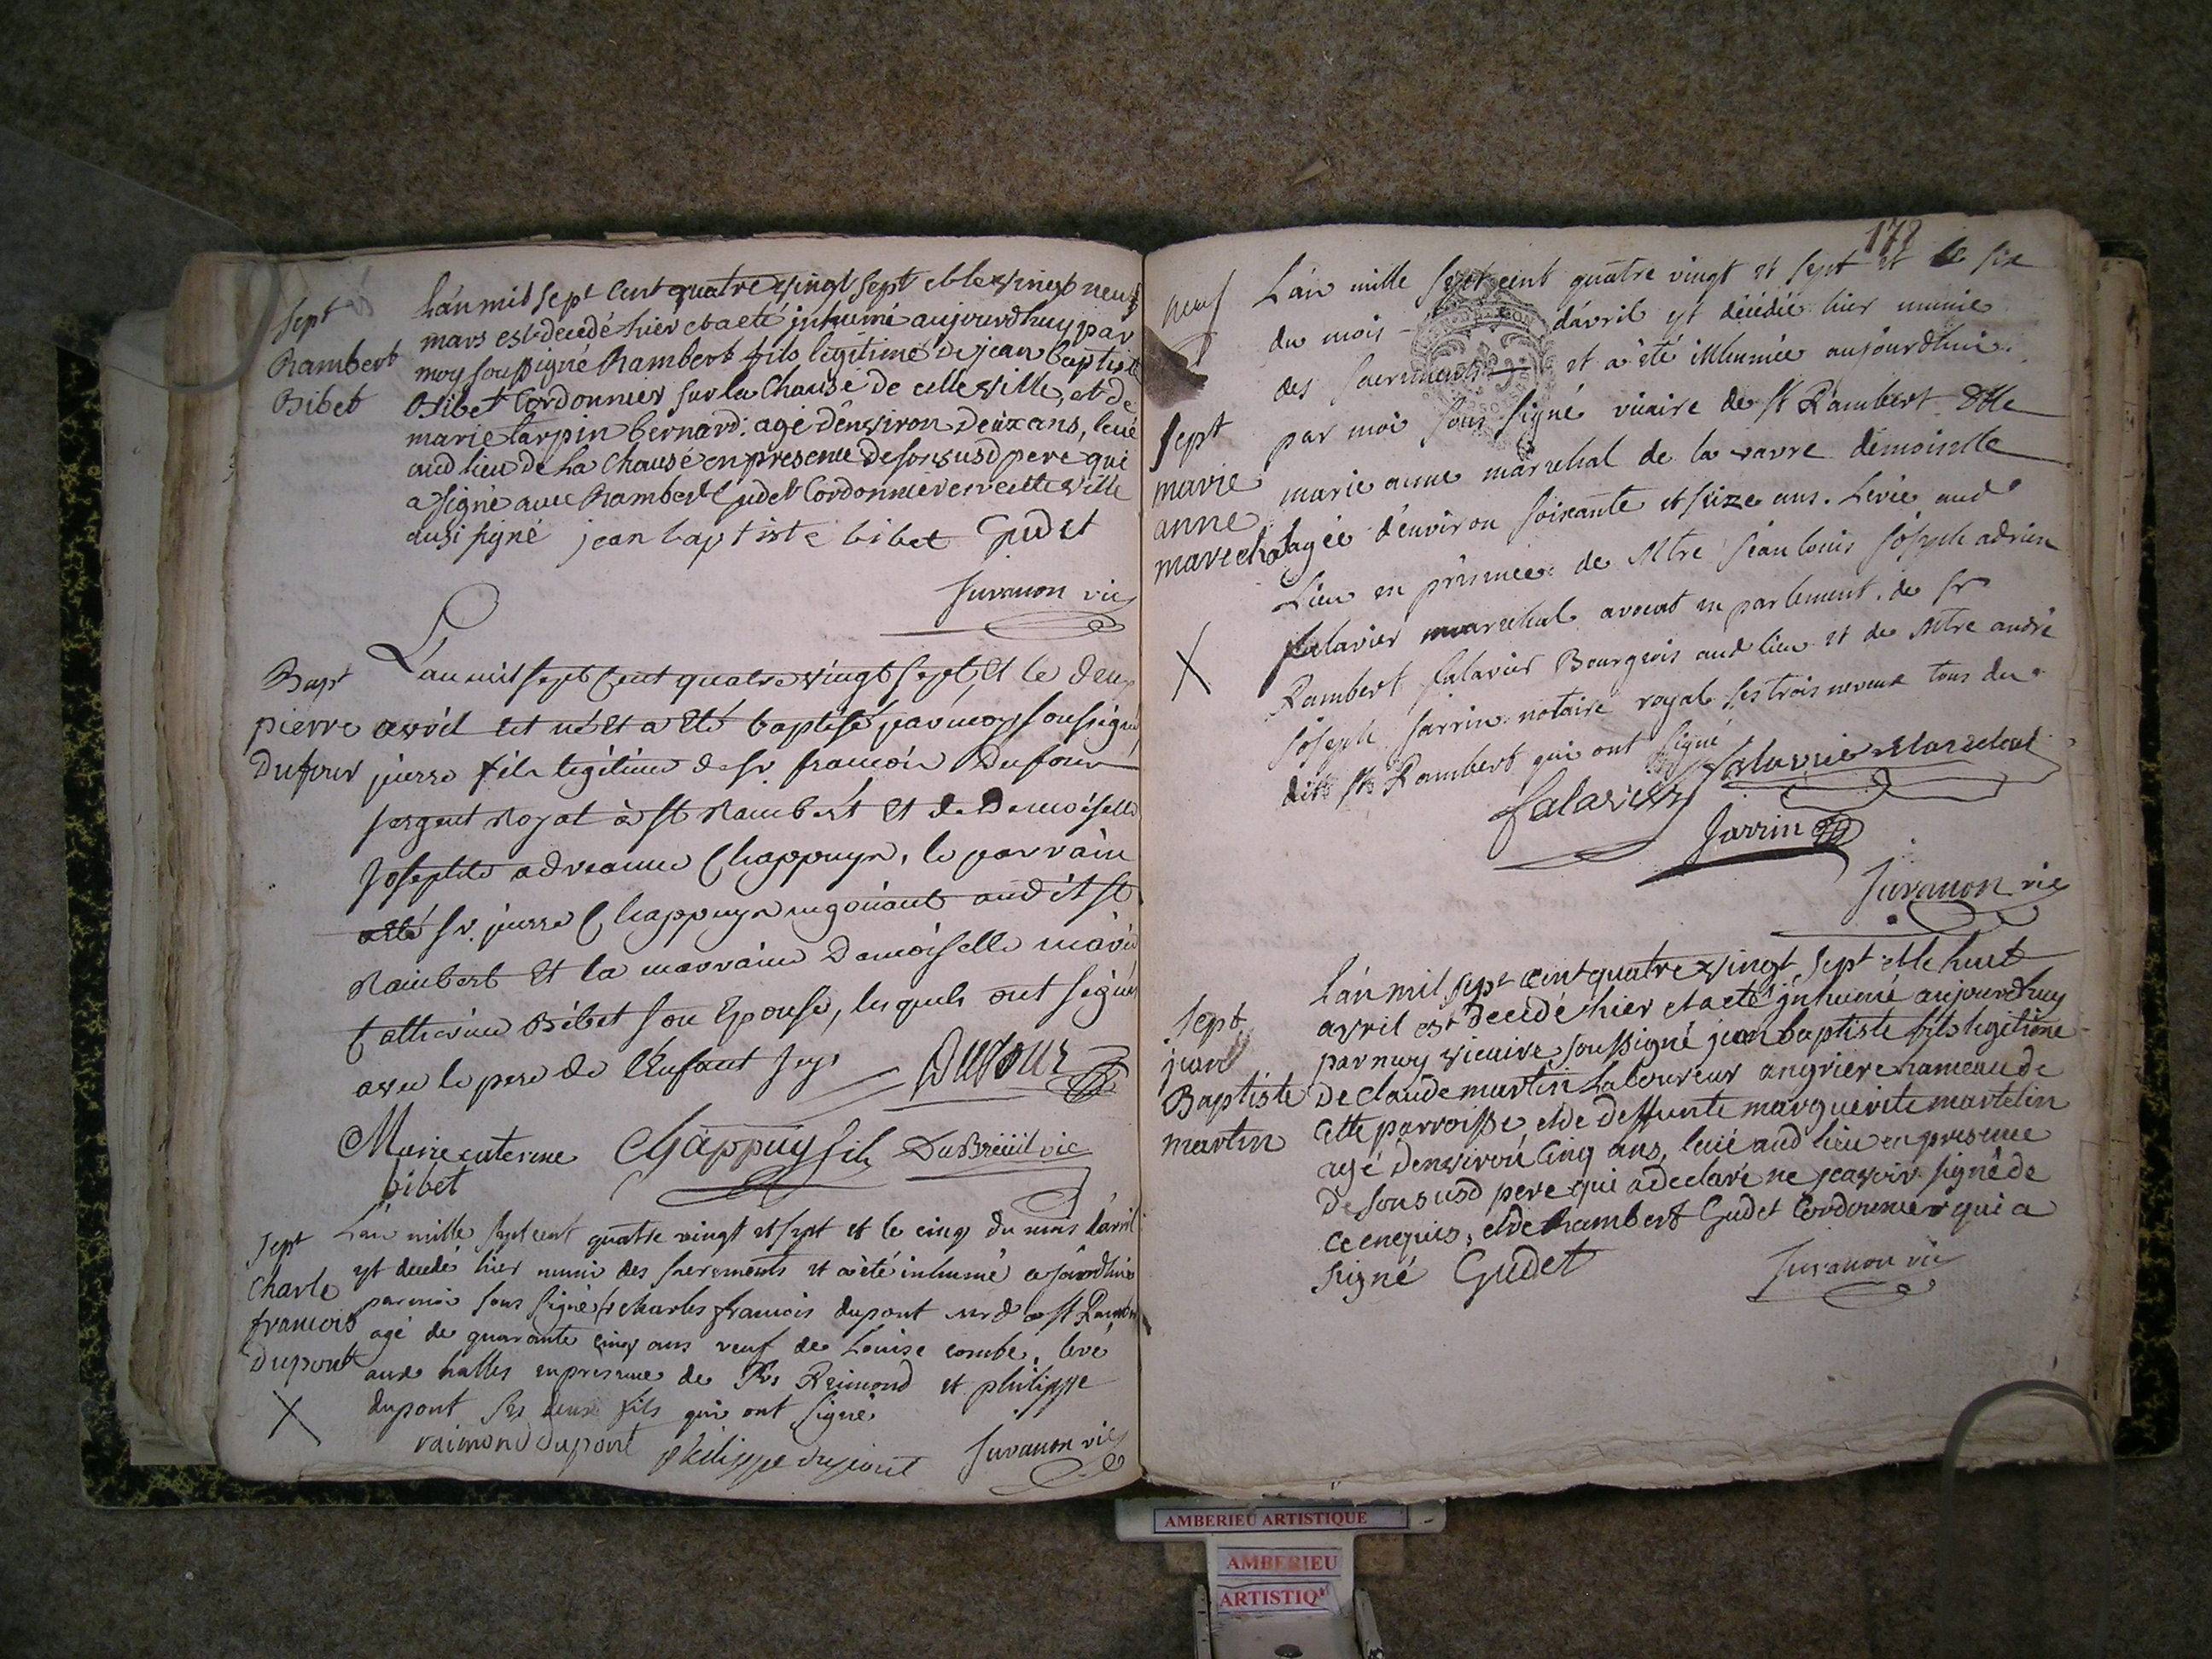 Sept
Rambert
Bibet
L'an mil sept cent quatre vingt sept et le vingt neuf
mars est decedé hier et a eté inhumé aujourdhuy par
moy soussigné Rambert fils legitime de jean baptiste
Bibet Cordonnier sur la Chausé de cette ville, et de
marie tarpin bernard: agé d'environ deux ans, levé
aud lieu de la Chausé en presence de son susd pere qui
a signé avec Rambert Gudet Cordonnier en cette ville
ausi signé jean baptiste bibet Gudet
Juvanon vic
Bapt
pierre
Dufour
L'an mil sept cent quatre vingt sept, et le deux
avril est né et a eté baptisé par moy soussigné
pierre fils légitime de sr. francois Dufour
sergent Royal à st Rambert et de Demoiselle
Josephte adrianne Chappuys, le parrain
a eté sr. pierre Chappuys negotiant audit st
Rambert et la marraine Demoiselle marie
Catherine Bibet son Epouse, lesquels ont signés
avec le pere de l'Enfant
Dufour
Marie caterine bibet Chappuy fils DuBreüil vic
Sept
Charle
francois
Dupont
X
L'an mille sept cent quatre vingt et sept et le cinq du mois d'avril
est decedé hier muni des sacrements et a été inhumé aujourdhui
par moi sous signé sr charles francois dupont md a st Rambert
agé de quarante cinq ans veuf de Louise combe, levé
aux halles en presence de Rd Reimond et philippe
dupont ses deux fils qui ont signé
raimond dupont philippe dupont Juvanon vic
178
neuf
Sept
marie
anne
marechal
X
L'an mille sept cent quatre vingt et sept et le six
du mois d'avril est décédée hier munie
des sacrements et a été inhumée aujourdhui
par moi sous signé vicaire de st Rambert Dlle
marie anne maréchal de la vavre demoiselle
agée d'environ soixante et seize ans. Levée aud
Lieu en présence de Mtre jean louis joseph adrien
falavier marechal avocat en parlement, de sr
Rambert falavier Bourgeois aud lieu et de Mtre andré
joseph Jarrin notaire royal ses trois neveux tous du
dit st Rambert qui ont signé
falavier Marechal
falavier
Jarrin
Juvanon vic
Sept
jean
Baptiste
martin
L'an mil sept cent quatre vingt sept et le huit
avril est decedé hier et a eté inhumé aujourdhuy
par moy vicaire soussigné jean baptiste fils legitime
de Claude martin Laboureur angriere hameau de
cette parroisse et de deffunte marguerite martelin
agé d'environ Cinq ans, levé aud lieu en presence
de son susd pere qui a declaré ne scavoir signé de
ce enquis, et de Rambert Gudet Cordonnier qui a
signé Gudet
Juvanon vic
AMBERIEU ARTISTIQUE
AMBERIEU
ARTISTIQ